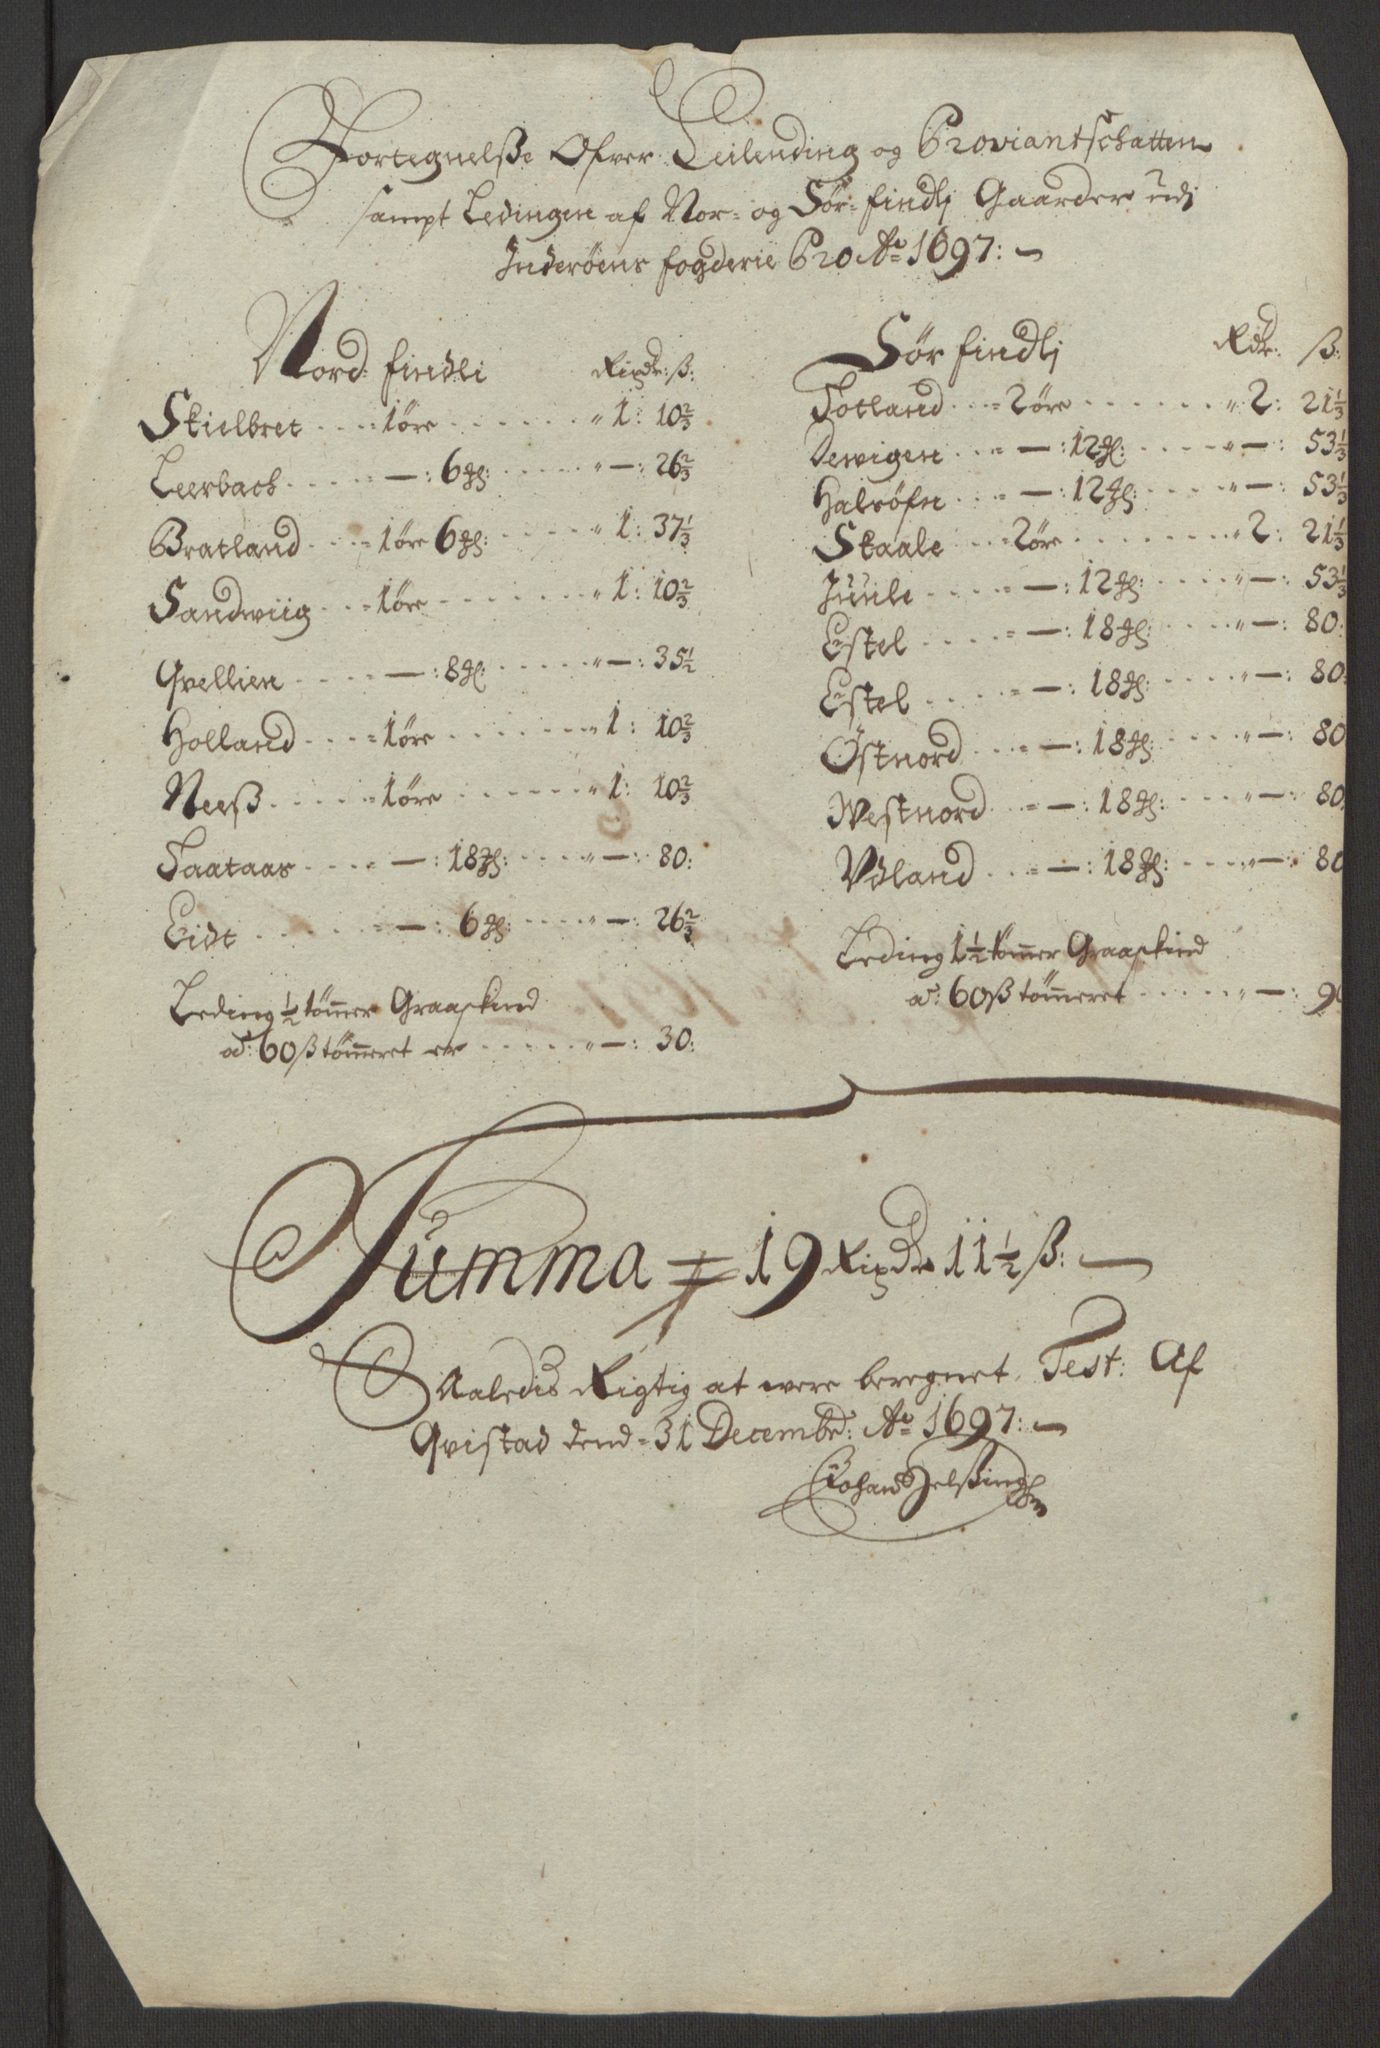 Fortegnelße Ofver Leilending og Proviantschatten
sampt Ledingen af Nor- og Sør-findlj Gaarder udj
Inderøens fogderie Pro Ao 1697:
Nord findli Rixdr: ß:
Skielbret 1 øre 1: 10 2/3
Leerbach —: 6 [mk]: —: 26 2/3
Bratland 1 øre 6 [mk]: 1: 37 1/3
Sandwiig 1 øre 1: 10 2/3
Qvellien —: 8 [mk]: —: 35 1/2
Holland 1 øre 1: 10 2/3
Neeß 1 øre 1: 10 2/3
Taataas —: 18 [mk]: —: 80:
Eidt —: 6 [mk]: —: 26 2/3
Leding 1/2 tømmer Graaskind
ad: 60 ß tømmeret er —: 30:
Sør findlj Rdr: ß:
Totland 2 øre 2: 21 1/3
Devigen —: 12 [mk]: —: 53 1/3
Halsøfn —: 12 [mk]: —: 53 1/3
Skaale 2 øre 2: 21 1/3
Juule —: 12 [mk]: —: 53 1/3
Estel —: 18 [mk]: —: 80:
Estel —: 18 [mk]: —: 80:
Østnord —: 18 [mk]: —: 80
Westnord —: 18 [mk]: —: 80:
Vdland —: 18 [mk]: —: 80
Leding 1 1/2 tømmer Graaskind
ad: 60 ß tømmeret —: 90
Summa 19 Rixdr 11 1/2 ß:
Saaledis Rigtig at were beregnet, Test: Af
Qvistad dend 31 Decembr: Ao 1697:
Johan Helßing